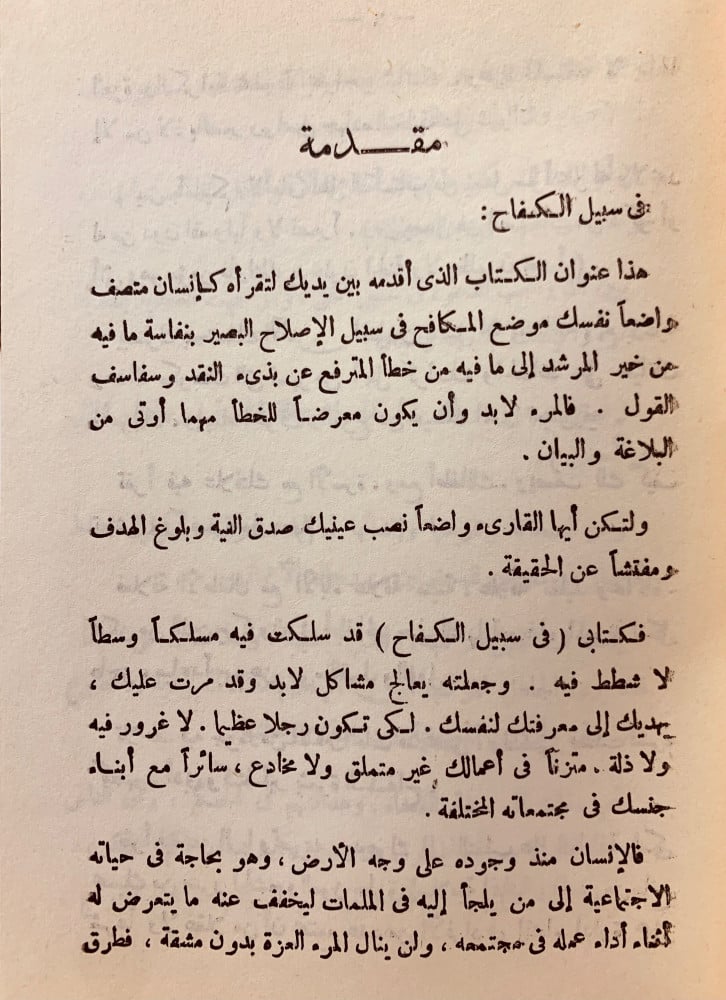 مقدمة
فى سبيل الكفاح :
هذا عنوان الكتاب الذى أقدمه بين يديك لتقرأه كإنسان متصف
واضعاً نفسك موضع المكافح فى سبيل الإصلاح البصير بنفاسة ما فيه
من خير المرشد إلى ما فيه من خطأ المترفع عن بذىء النقد وسفاسف
القول . فالمرء لابد وأن يكون معرضاً للخطأ مهما أوتى من
البلاغة والبيان .
ولتكن أيها القارىء واضعاً نصب عينيك صدق النية وبلوغ الهدف
ومفتشاً عن الحقيقة .
فكتابى ( فى سبيل الكفاح ) قد سلكت فيه مسلكاً وسطاً
لا شطط فيه . وجعلته يعالج مشاكل لابد وقد مرت عليك ،
يهديك إلى معرفتك لنفسك . لكى تكون رجلا عظيما . لا غرور فيه
ولا ذلة . متزناً فى أعمالك غير متملق ولا مخادع ، سائراً مع أبناء
جنسك فى مجتمعاته المختلفة .
فالإنسان منذ وجوده على وجه الأرض ، وهو بحاجة فى حياته
الاجتماعية إلى من يلجأ إليه فى الملمات ليخفف عنه ما يتعرض له
أثناء أداء عمله فى مجتمعه ، ولن ينال المرء العزة بدون مشقة ، فطرق